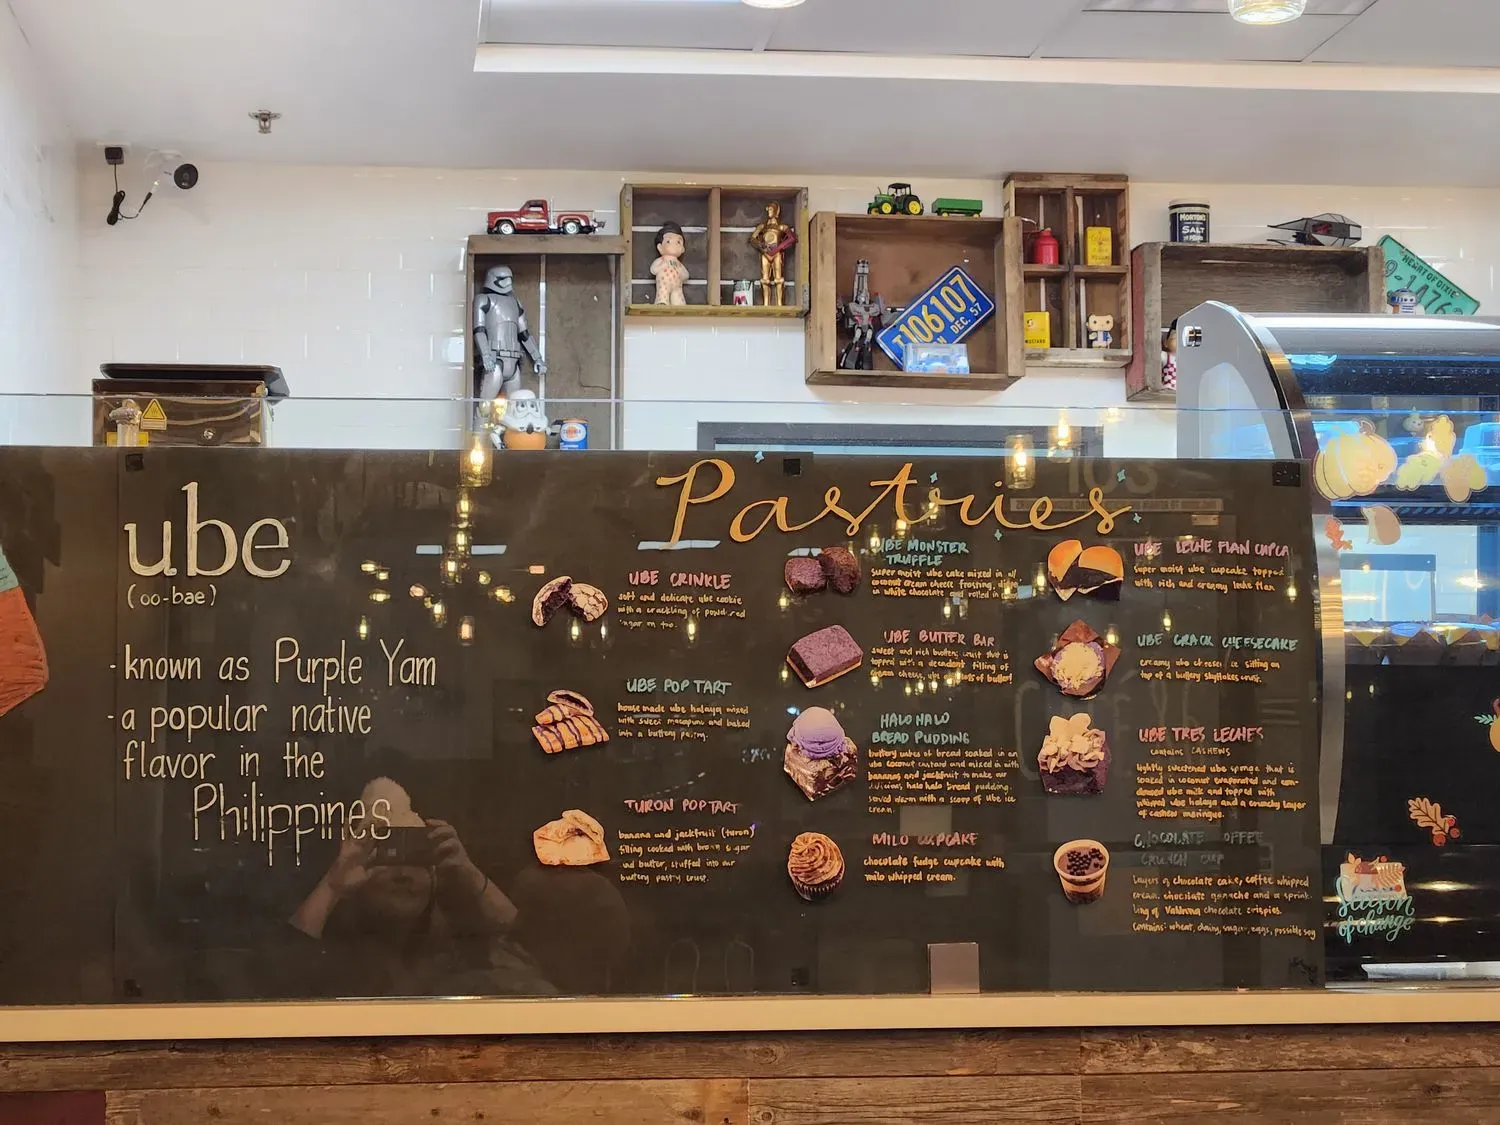 ube
(oo-bae)
-known as Purple Yam
-a popular native
flavor in the
Philippines
Pastries
UBE CRINKLE
soft and delicate ube cookie
with a crackling of powdered
sugar on top.
UBE POP TART
house made ube halaya mixed
with sweet macapuno and baked
into a buttery pastry.
TURON POP TART
banana and jackfruit (turon)
filling cooked with brown sugar
and butter, stuffed into our
buttery pastry crust.
UBE MONSTER
TRUFFLE
super moist ube cake mixed in w/
coconut cream cheese frosting, dipped
in white chocolate and rolled in
UBE BUTTER BAR
sweet and rich buttery crust that is
topped with a decadent filling of
cream cheese, ube of butter!
HALO HALO
BREAD PUDDING
buttery cubes of bread soaked in an
ube coconut custard and mixed in with
bananas and jackfruit to make our
delicious halo halo bread pudding.
served warm with a scoop of ube ice
cream.
MILO CUPCAKE
chocolate fudge cupcake with
milo whipped cream.
UBE LECHE FLAN CUPCA
super moist ube cupcake topped
with rich and creamy leche flan
UBE CRACK CHEESECAKE
creamy ube cheesecake sitting on
top of a buttery skyflakes crust.
UBE TRES LECHES
contains CASHEWS
lightly sweetened ube sponge that is
soaked in coconut evaporated and con-
densed ube milk and topped with
whipped ube halaya and a crunchy layer
of cashew meringue.
CHOCOLATE COFFEE
CRUNCH CUP
Layers of chocolate cake, coffee whipped
cream, chocolate ganache and a sprink-
ling of Valrhona chocolate crispies.
Contains: wheat, dairy, sugar, eggs, possible soy
T106107
DEC. 57
MORTON
SALT
HEART OF DIXIE
MUSTARD
season
of change